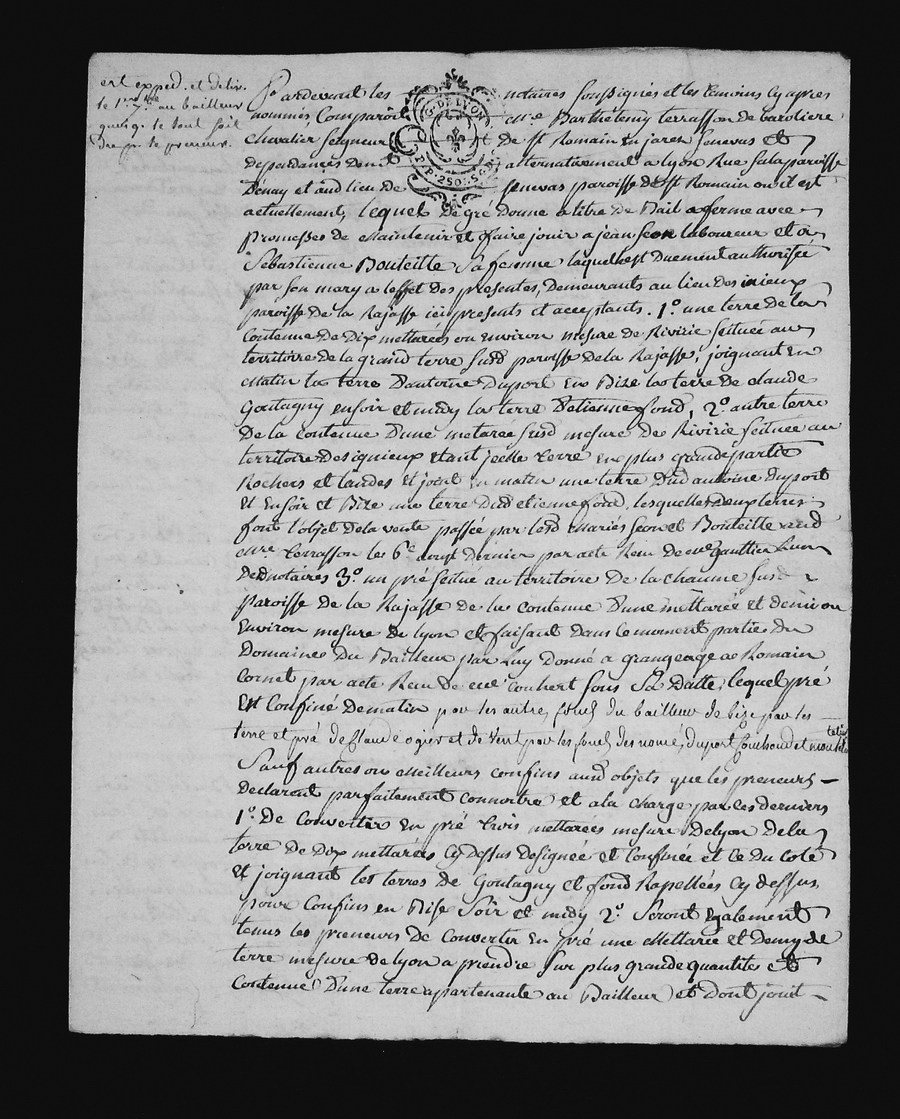 est exped. et deliv.
le 1er 7bre au bailleur
quoiq. le tout soit
du p. le preneur.
G. DE LYON
P.P. 2 SOLS 
Pardevant les notaires soussignés et les temoins cy apres
nommés Comparôit mre Barthélemy terrasson de barolliere
chevalier seigneur de st Romain en jares senevas et
dependances demt alternativement a lyon Rue sala paroisse
Denay et aud lieu de senevas paroisse de st Romain ou il est
actuellement, lequel de gré donne a titre de Bail a ferme avec
promesse de Maintenir et faire jouir a jean seon laboureur et a
Sebastienne Bouteille sa femme laquelle est duement authorisée
par son mary a leffet des presentes, demeurants au lieu des
paroisse de la Rajasse ici presents et acceptants. 1.° une terre de la
Contenue de Dix mettarées ou environ mesure de Rivirie scituée au
territoire de la grand terre susd paroisse de la Rajasse, joignant en
Matin la terre d'antoine Duport en Bize la terre de claude
Goutagny en soir et midy la terre d'etienne fond, 2.° autre terre
De la contenue d'une metarée susd mesure de Rivirie scituée au
territoire de signieux etant jcelle terre en plus grande partie
Rochers et landes et joint en matin une terre dud antoine duport
et en soir et Bize une terre dud etienne fond, lesquelles deux terres
font l'objet de la vente passée par lesd mariés seon et Bouteille aud
mre terrasson le 6e aoust dernier par acte Recu de me gaultier l'un
Desd notaires 3.° un pré scitué au territoire de la chaume susd
paroisse de la Rajasse de la contenue d'une mettarée et demi ou
Environ mesure de lyon et faisant dans ce moment partie du
Domaine du Bailleur par luy Donné a grangeage a Romain
Cornet par acte Recu de me couhert sous Sa Datte, lequel pré
est Confiné De matin par les autres fonds du bailleur de bize par les
terre et pré de claude ogier et de vent par les fonds des nommés duport et
Sauf autres ou Meilleurs confins auxd objets que les preneurs
Declarent parfaitement connoitre et a la charge par ces derniers
1.° De Convertir en pré trois mettarées mesure de lyon de la
terre de Dix mettarées Cy Dessus designée et Confinée et ce du coté
et joignant les terres de Goutagny et fond Rapellées Cy dessus
pour Confins en Bise Soir et midy 2.° Seront Egalement
tenus les preneurs de Convertir en pré une Mettarée et Demy de
terre mesure de lyon a prendre sur plus grande quantité et
Contenue d'une terre apartenante au Bailleur et Dont jouit